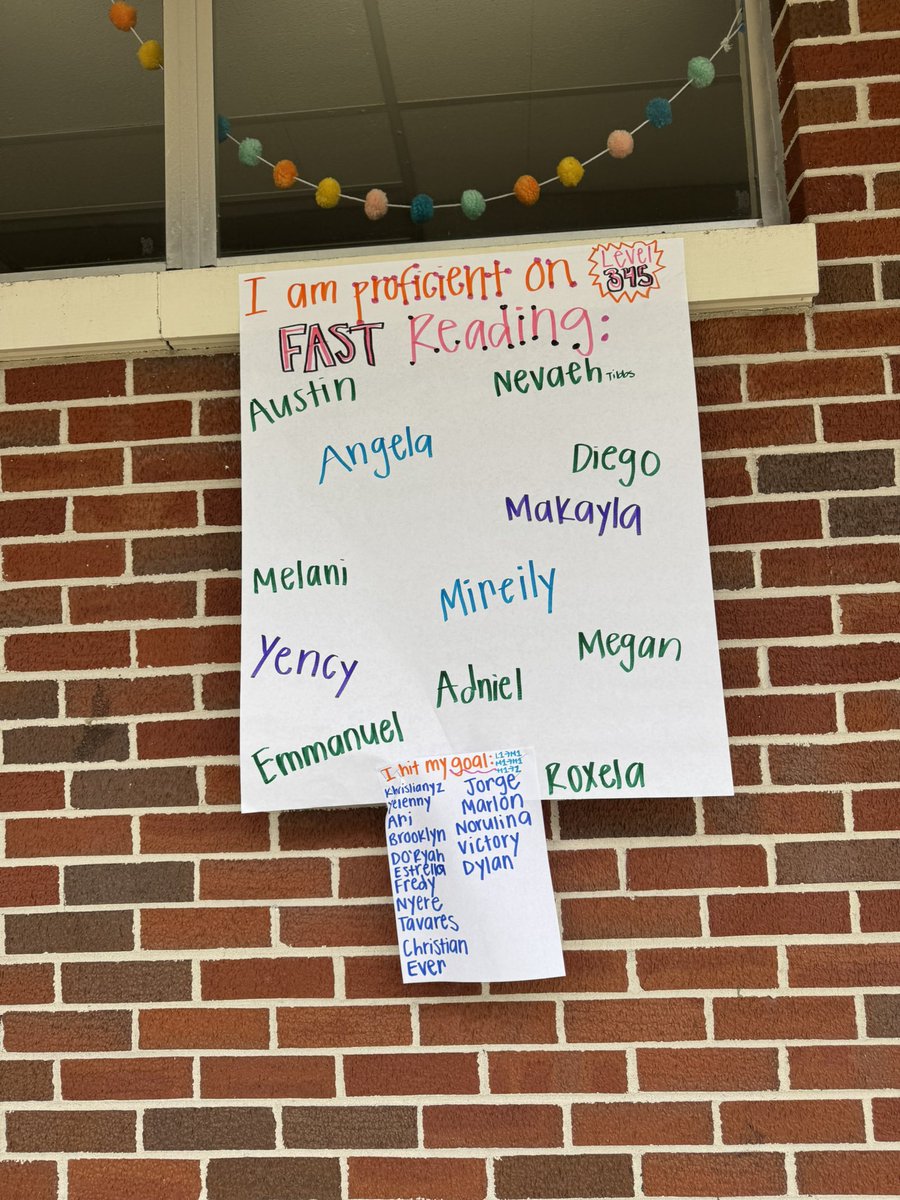 I am proficient on Level 345
FAST Reading:
Austin
Nevaeh Tibbs
Angela
Diego
Makayla
Melani
Mireily
Yency
Megan
Adniel
Emmanuel
Roxela
I hit my goal:
L1→M1
M1→H1
H1→1
Khrislianyz
Yelenny
Ari
Brooklyn
DO'Ryah
Estrella
Fredy
Nyere
Tavares
Christian
Ever
Jorge
Marlon
Norulina
Victory
Dylan